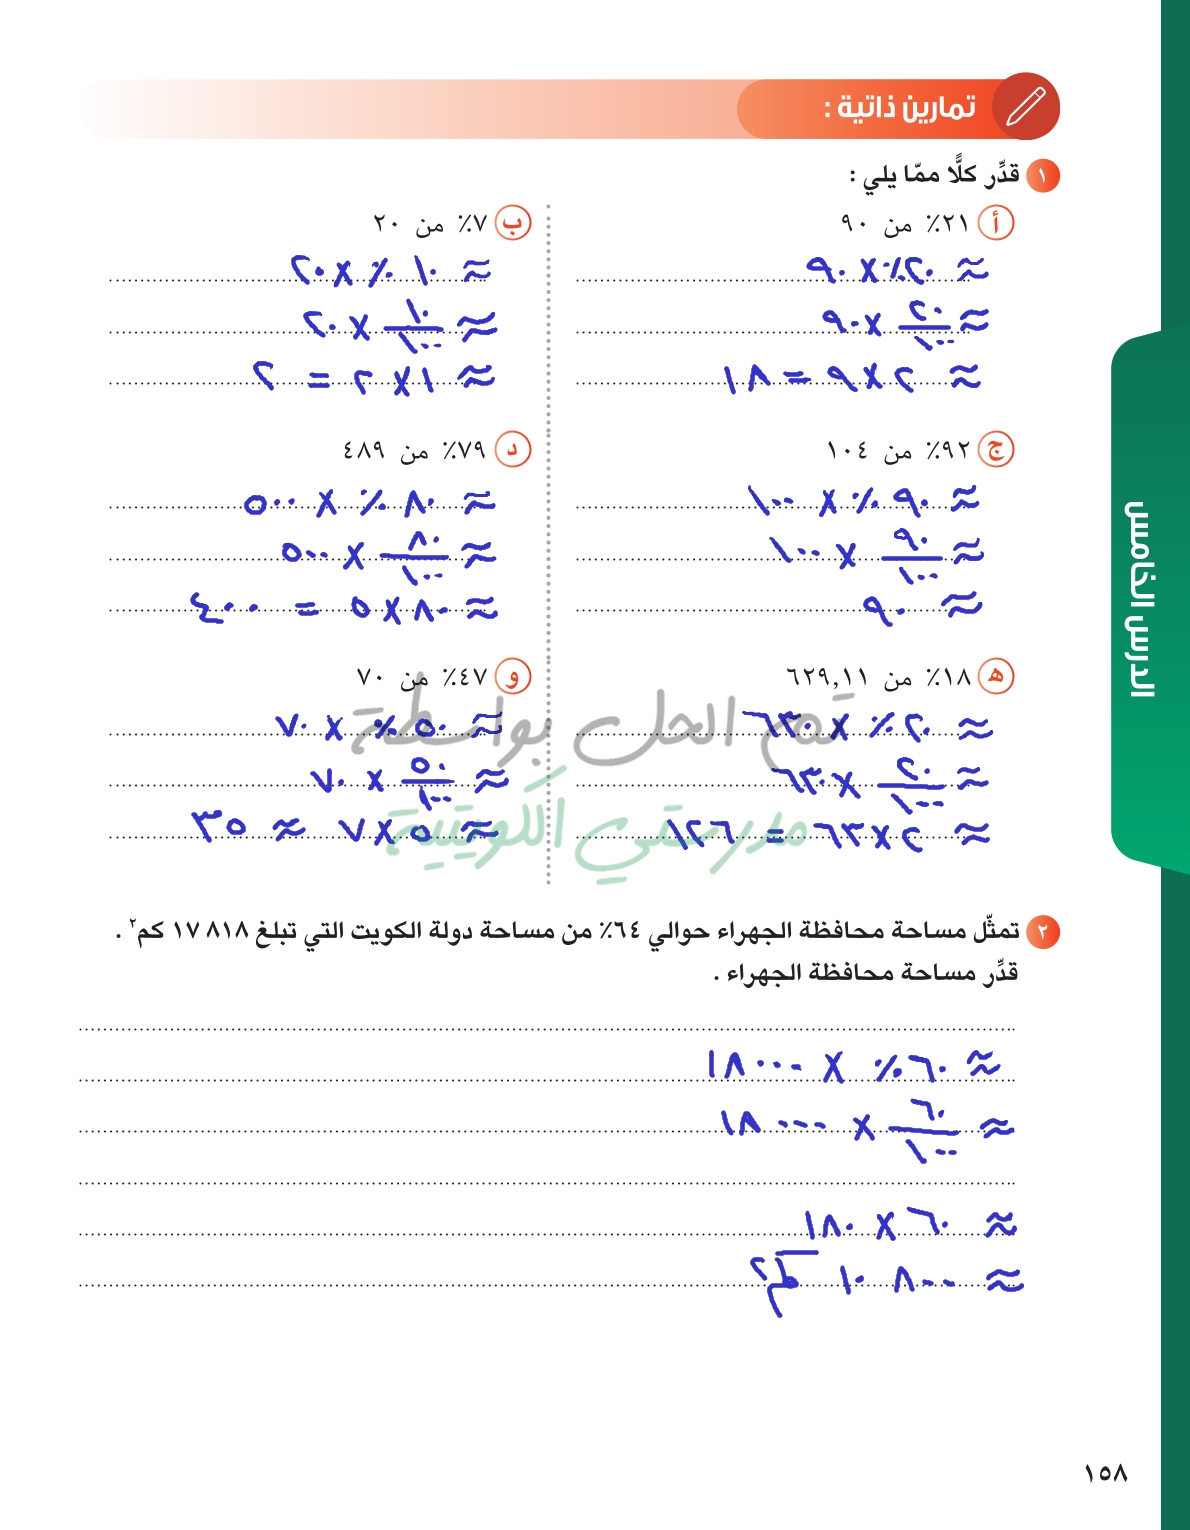 تمارين ذاتية :
١ قدِّر كلًّا ممّا يلي :
أ ٢١٪ من ٩٠
≈ ٢٠٪ × ٩٠
≈ ٢٠/١٠٠ × ٩٠
≈ ٢ × ٩ = ١٨
ب ٧٪ من ٢٠
≈ ١٠٪ × ٢٠
≈ ١٠/١٠٠ × ٢٠
≈ ١ × ٢ = ٢
ج ٩٢٪ من ١٠٤
≈ ٩٠٪ × ١٠٠
≈ ٩٠/١٠٠ × ١٠٠
≈ ٩٠
د ٧٩٪ من ٤٨٩
≈ ٨٠٪ × ٥٠٠
≈ ٨٠/١٠٠ × ٥٠٠
≈ ٨٠ × ٥ = ٤٠٠
ه ١٨٪ من ٦٢٩,١١
≈ ٢٠٪ × ٦٣٠
≈ ٢٠/١٠٠ × ٦٣٠
≈ ٢ × ٦٣ = ١٢٦
و ٤٧٪ من ٧٠
≈ ٥٠٪ × ٧٠
≈ ٥٠/١٠٠ × ٧٠
≈ ٥ × ٧ ≈ ٣٥
تم الحل بواسطة
مدرستي الكويتية
٢ تمثّل مساحة محافظة الجهراء حوالي ٦٤٪ من مساحة دولة الكويت التي تبلغ ٨١٨ ١٧ كم٢ .
قدِّر مساحة محافظة الجهراء .
≈ ٦٠٪ × ١٨٠٠٠
≈ ٦٠/١٠٠ × ١٨٠٠٠
≈ ٦٠ × ١٨٠
≈ ٨٠٠ ١٠ كم٢
الدرس الخامس
١٥٨